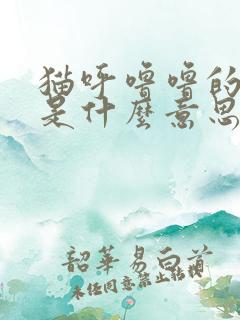 猫呼噜噜的
是什麽意思
韶华易白首
未经同意禁止转授